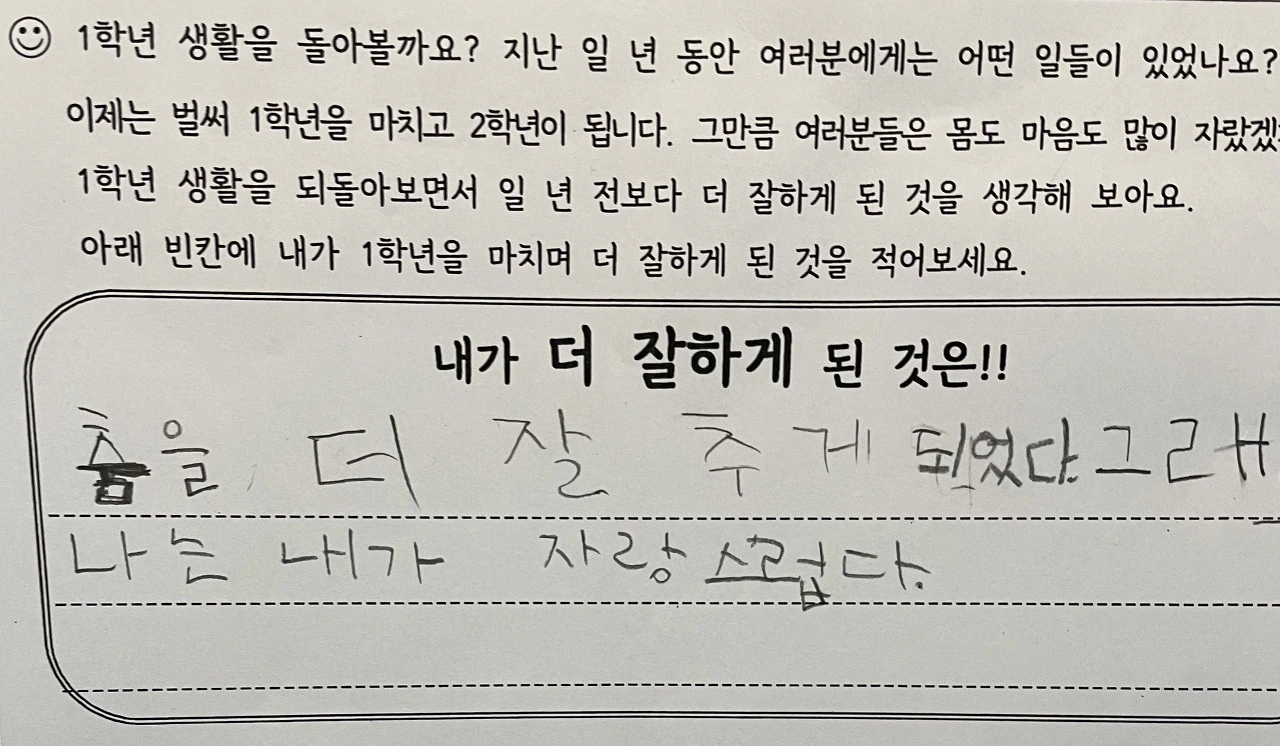 1학년 생활을 돌아볼까요? 지난 일 년 동안 여러분에게는 어떤 일들이 있었나요?
이제는 벌써 1학년을 마치고 2학년이 됩니다. 그만큼 여러분들은 몸도 마음도 많이 자랐겠
1학년 생활을 되돌아보면서 일 년 전보다 더 잘하게 된 것을 생각해 보아요.
아래 빈칸에 내가 1학년을 마치며 더 잘하게 된 것을 적어보세요.
내가 더 잘하게 된 것은!!
춤을 더 잘 추게 되었다. 그래
나는 내가 자랑스럽다.